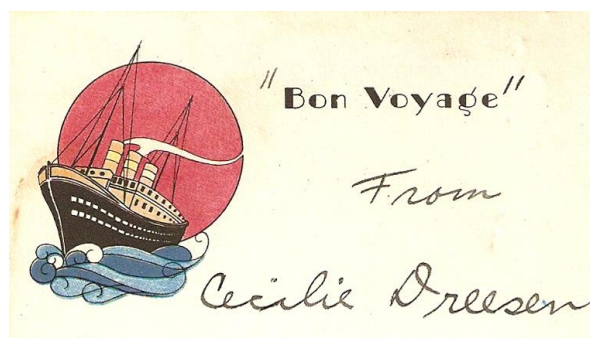 "Bon Voyage"
From
Cecilie Dreesen